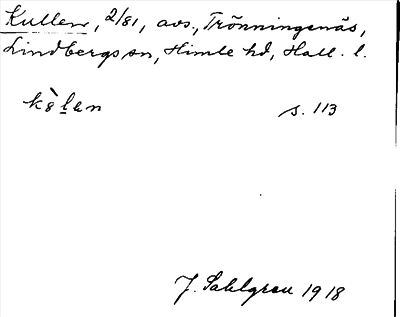 Kullen, 2/81, avs., Trönningenäs,
Lindbergs sn, Himle hd, Hall. l.
s. 113
J. Sahlgren 1918